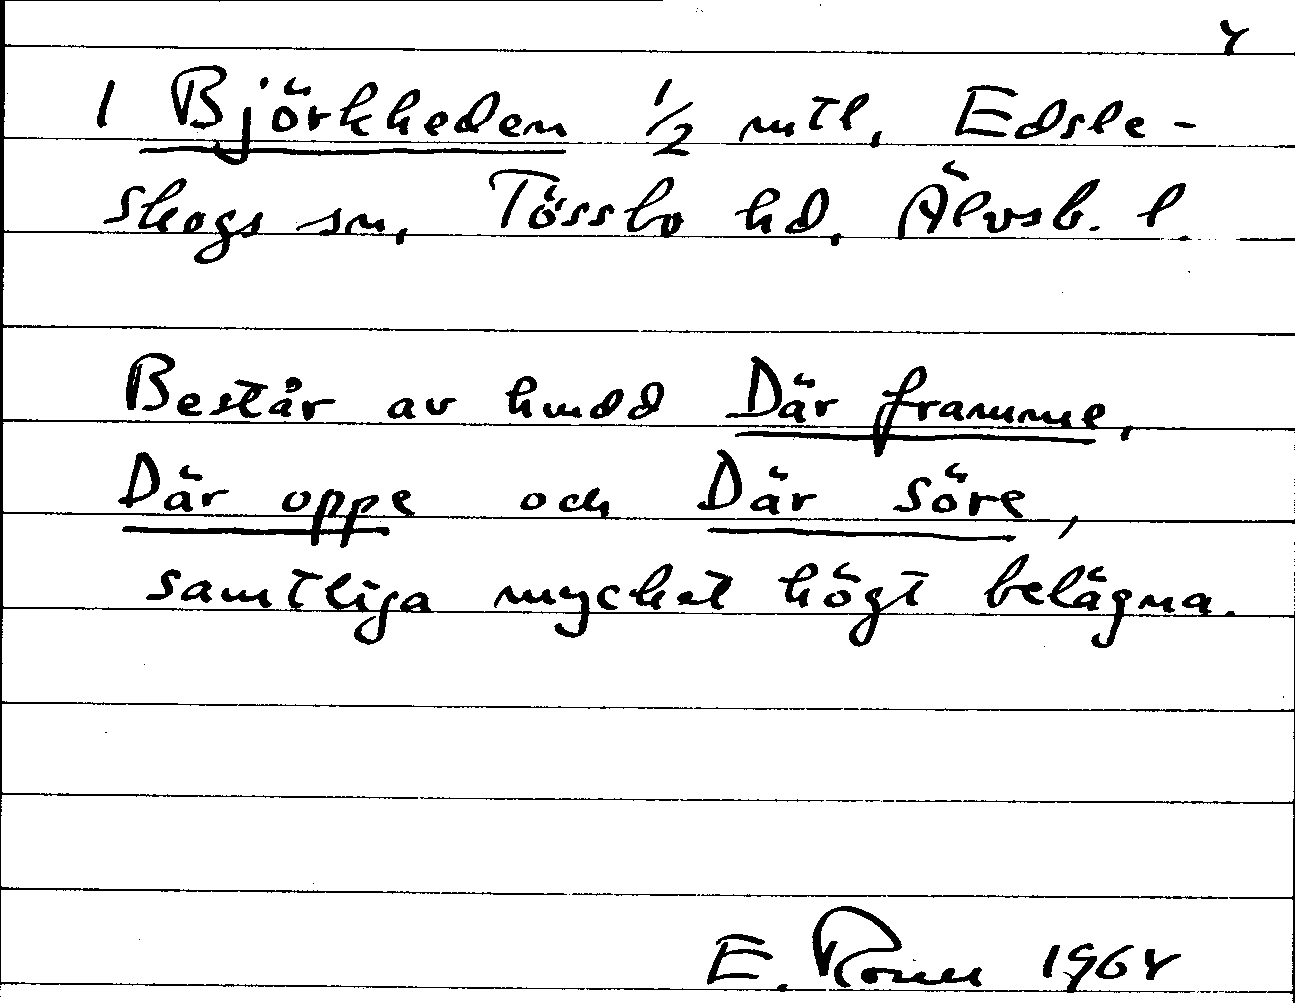 4
1 Björkheden 1/2 mtl, Edsle-
skogs sn, Tössbo hd, Älvsb. l.
Består av hmdd Där framme,
Där oppe och Där söre,
samtliga mycket högt belägna.
E. 1964